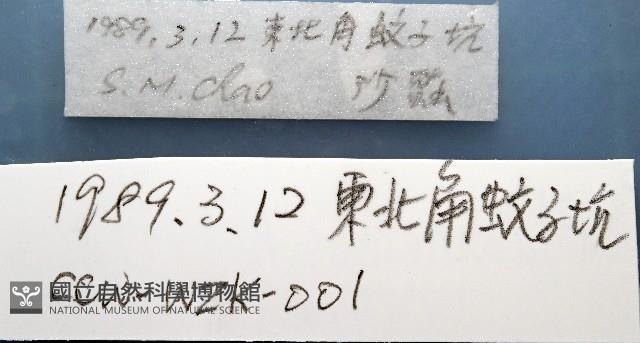 1989.3.12 東北角蚊子坑
S.M. Chao 沙蠶
1989.3.12 東北角蚊子坑
CCW-WZK-001
國立自然科學博物館
NATIONAL MUSEUM OF NATURAL SCIENCE